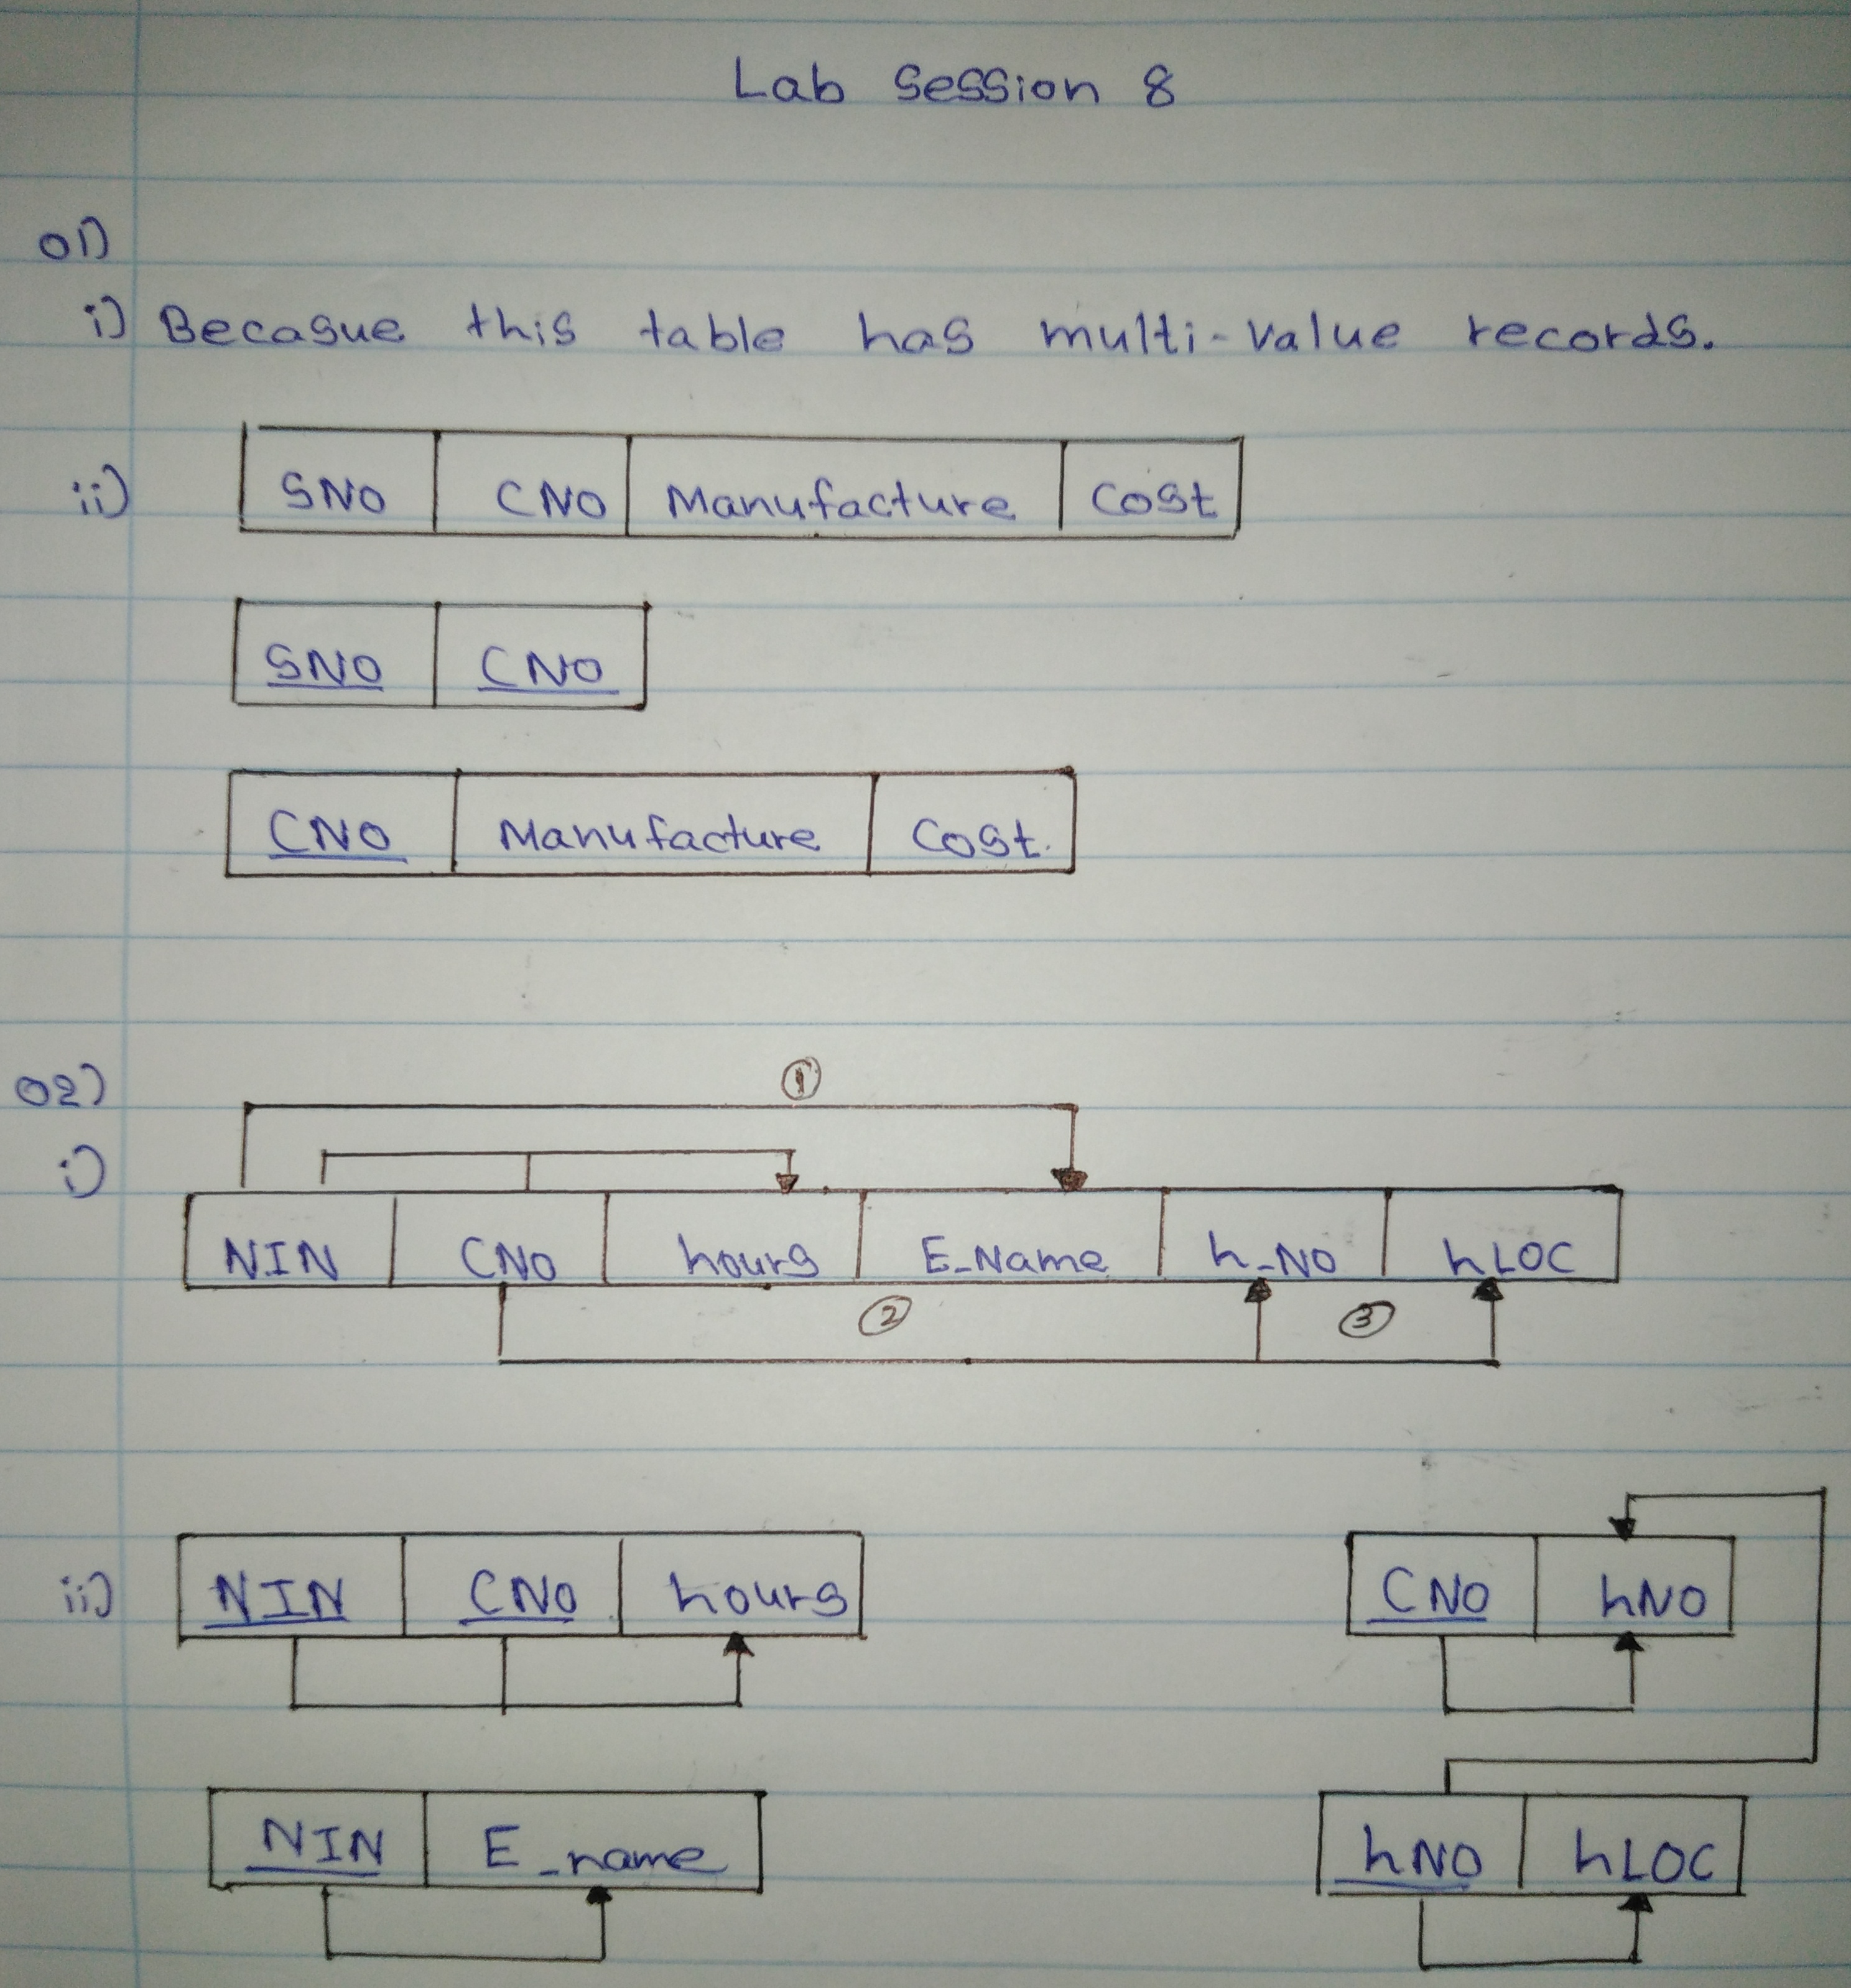 Lab Session 8
01)
i) Becasue this table has multi-value records.
ii) SNO CNO Manufacture Cost
SNO CNO
CNO Manufacture Cost.
02)
①
i)
NIN CNO hours E_Name h_NO hLOC
② ③
ii) NIN CNO hours
CNO hNO
NIN E_name
hNO hLOC